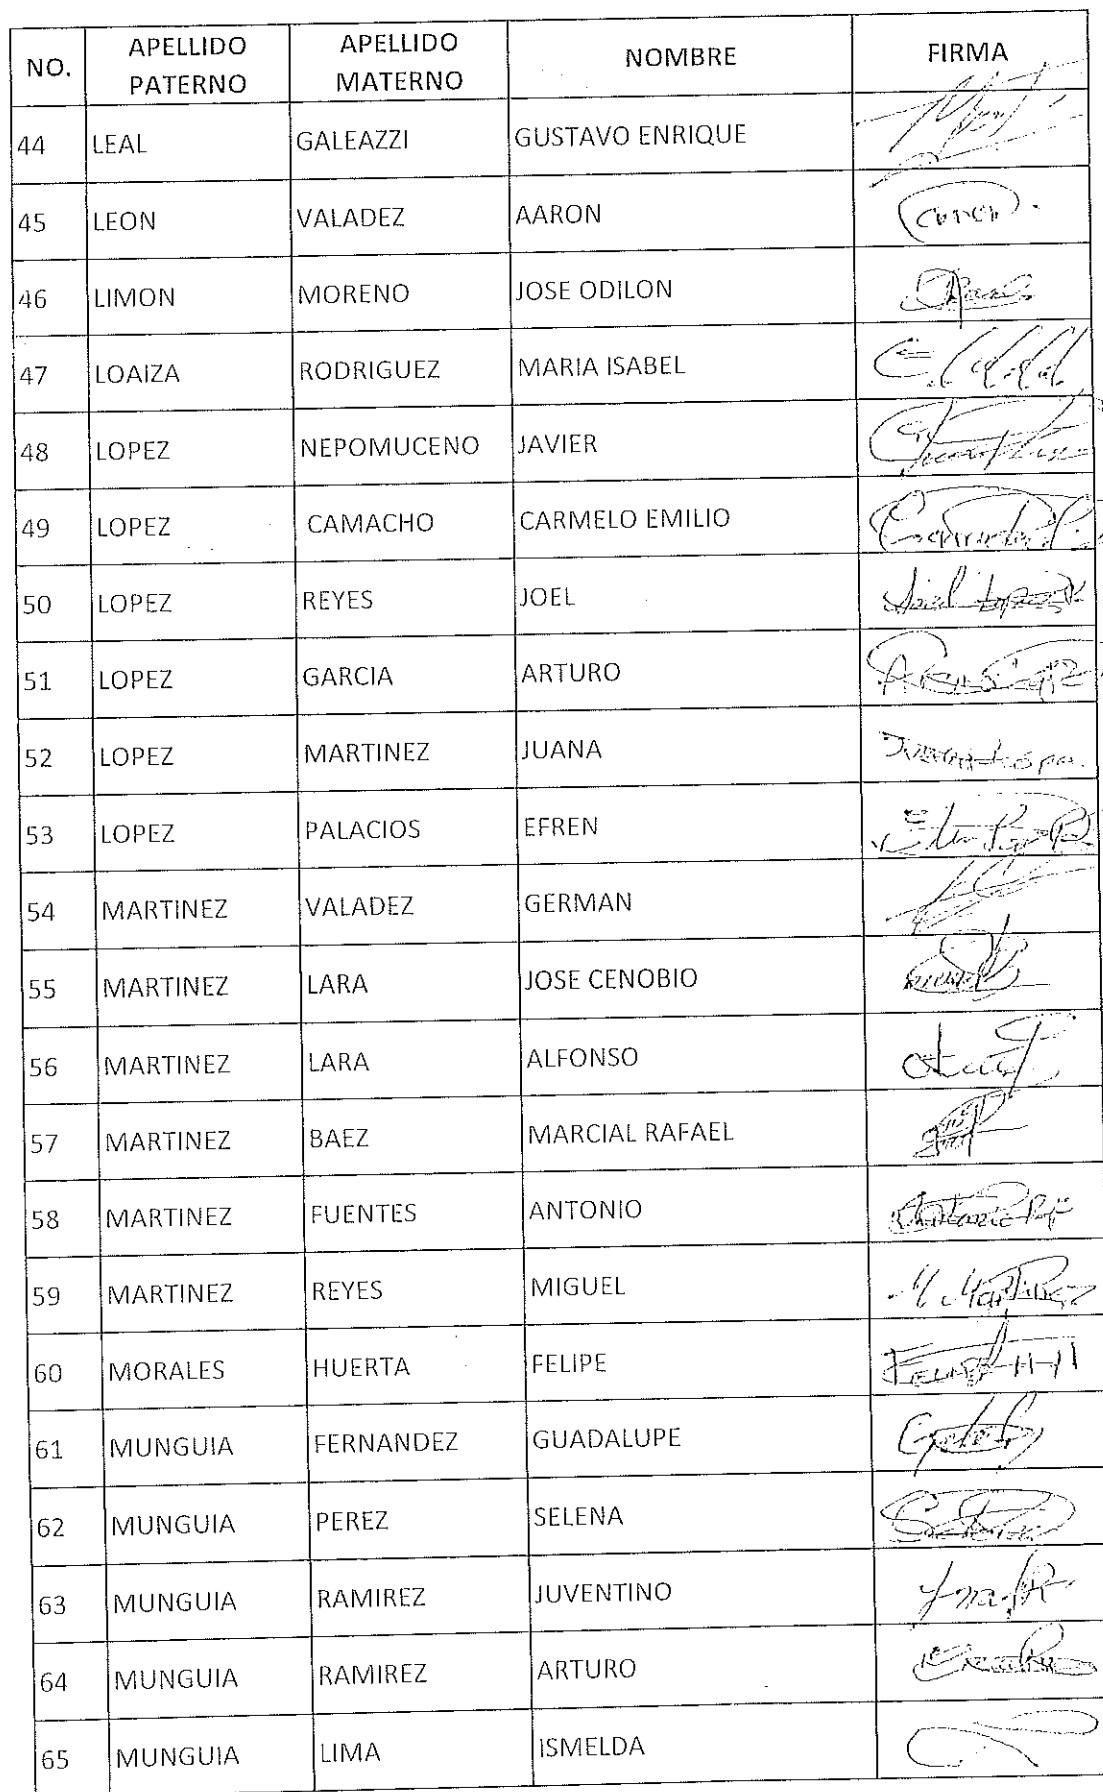 NO. APELLIDO PATERNO APELLIDO MATERNO NOMBRE FIRMA
44 LEAL GALEAZZI GUSTAVO ENRIQUE
45 LEON VALADEZ AARON
46 LIMON MORENO JOSE ODILON
47 LOAIZA RODRIGUEZ MARIA ISABEL
48 LOPEZ NEPOMUCENO JAVIER
49 LOPEZ CAMACHO CARMELO EMILIO
50 LOPEZ REYES JOEL
51 LOPEZ GARCIA ARTURO
52 LOPEZ MARTINEZ JUANA
53 LOPEZ PALACIOS EFREN
54 MARTINEZ VALADEZ GERMAN
55 MARTINEZ LARA JOSE CENOBIO
56 MARTINEZ LARA ALFONSO
57 MARTINEZ BAEZ MARCIAL RAFAEL
58 MARTINEZ FUENTES ANTONIO
59 MARTINEZ REYES MIGUEL M. Martinez
60 MORALES HUERTA FELIPE
61 MUNGUIA FERNANDEZ GUADALUPE
62 MUNGUIA PEREZ SELENA
63 MUNGUIA RAMIREZ JUVENTINO
64 MUNGUIA RAMIREZ ARTURO
65 MUNGUIA LIMA ISMELDA